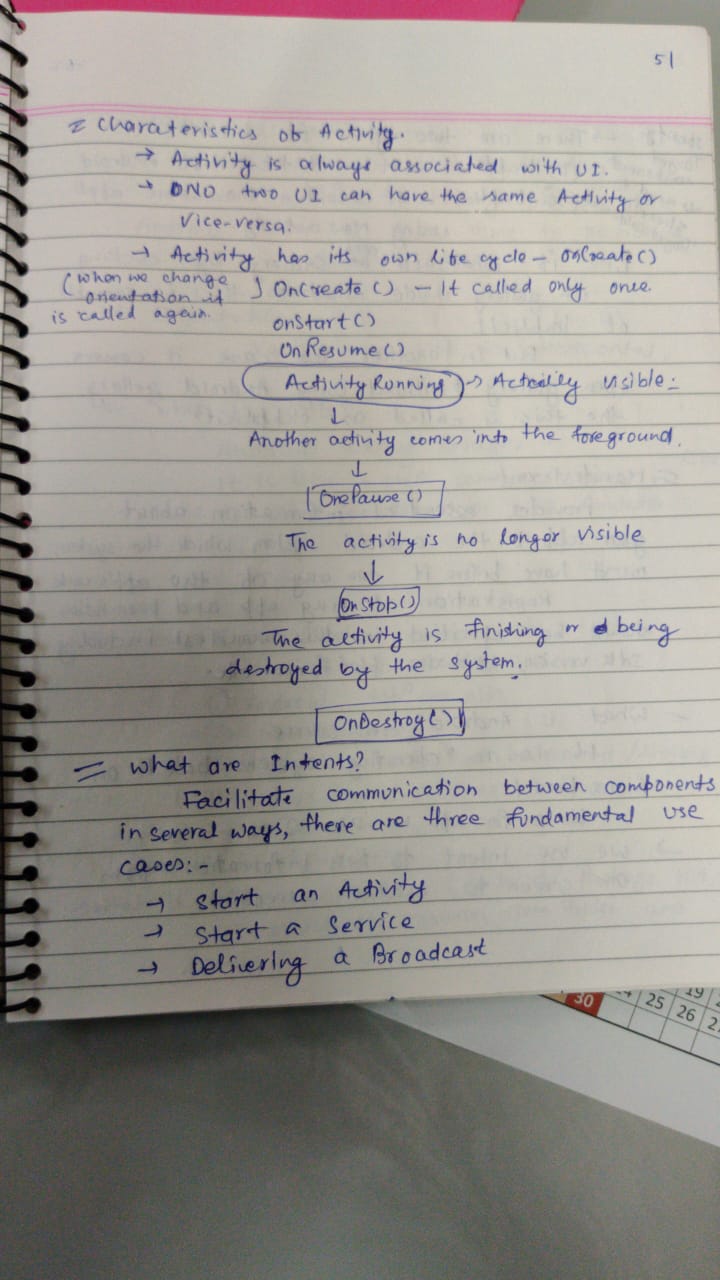 51
= Charateristics of Activity.
→ Activity is always associated with UI.
→ NO two UI can have the same Activity or
Vice-versa.
→ Activity has its own life cycle - onCreate()
(when we change orientation it is called again.) OnCreate () - It called only once.
onStart()
OnResume()
Activity Running → Actually visible:
↓
Another activity comes into the foreground.
↓
OnePause ()
The activity is no longer visible
↓
OnStop()
The activity is finishing or being
destroyed by the system.
OnDestroy()
= What are Intents?
Facilitate communication between components
in several ways, there are three fundamental use
cases:-
→ Start an Activity
→ Start a Service
→ Delivering a Broadcast
30 25 19
26